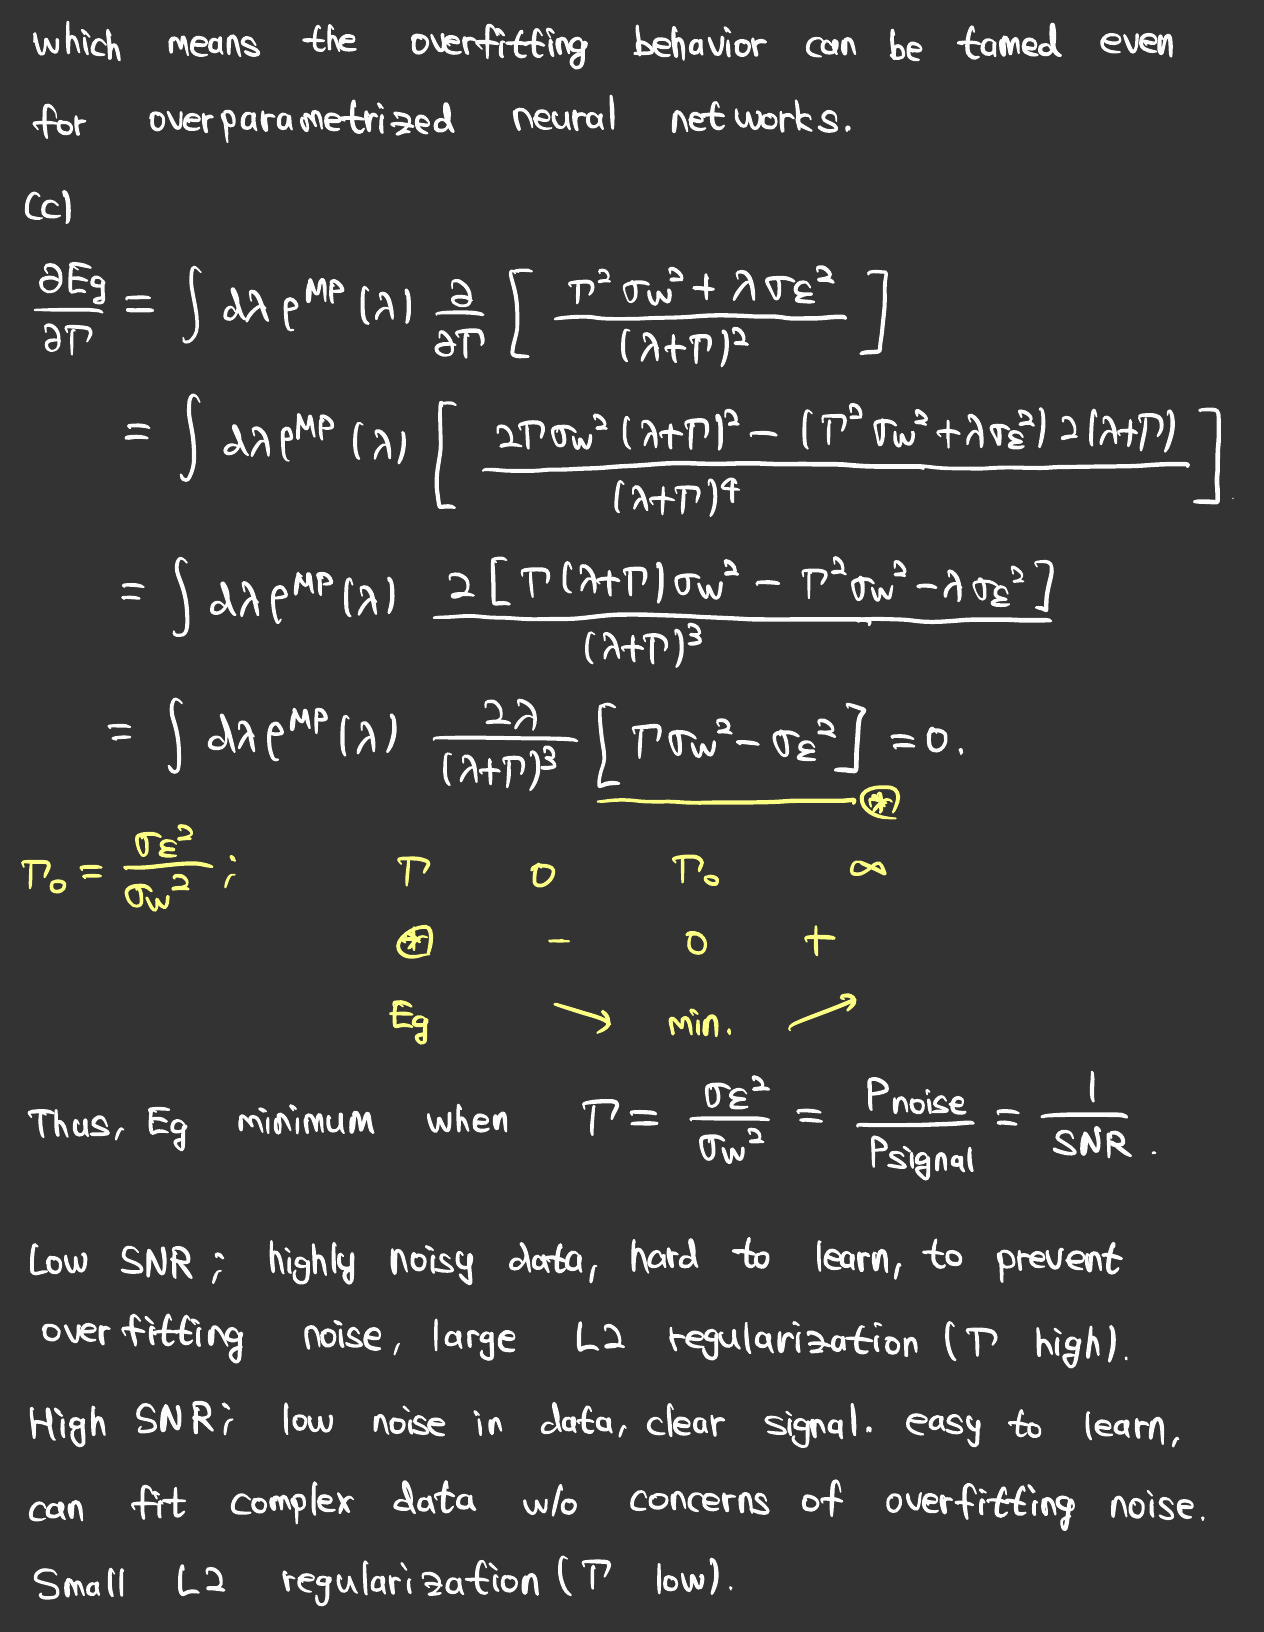 which means the overfitting behavior can be tamed even
for overparametrized neural networks.
(c)
∂Eg/∂Γ = ∫ dλ ρ^MP (λ) ∂/∂Γ [ (Γ² σw² + λ σε²) / (λ+Γ)² ]
= ∫ dλ ρ^MP (λ) [ (2Γσw² (λ+Γ)² − (Γ² σw² + λσε²) 2(λ+Γ)) / (λ+Γ)⁴ ]
= ∫ dλ ρ^MP (λ) 2 [Γ(λ+Γ)σw² − Γ²σw² − λσε²] / (λ+Γ)³
= ∫ dλ ρ^MP (λ) 2λ / (λ+Γ)³ [Γσw² − σε²] = 0.
⊛
Γ₀ = σε² / σw² ; Γ 0 Γ₀ ∞
⊛ − 0 +
Eg ↘ min. ↗
Thus, Eg minimum when Γ = σε² / σw² = Pnoise / Psignal = 1 / SNR .
Low SNR ; highly noisy data, hard to learn, to prevent
overfitting noise, large L2 regularization (Γ high).
High SNR ; low noise in data, clear signal. easy to learn,
can fit complex data w/o concerns of overfitting noise.
Small L2 regularization (Γ low).